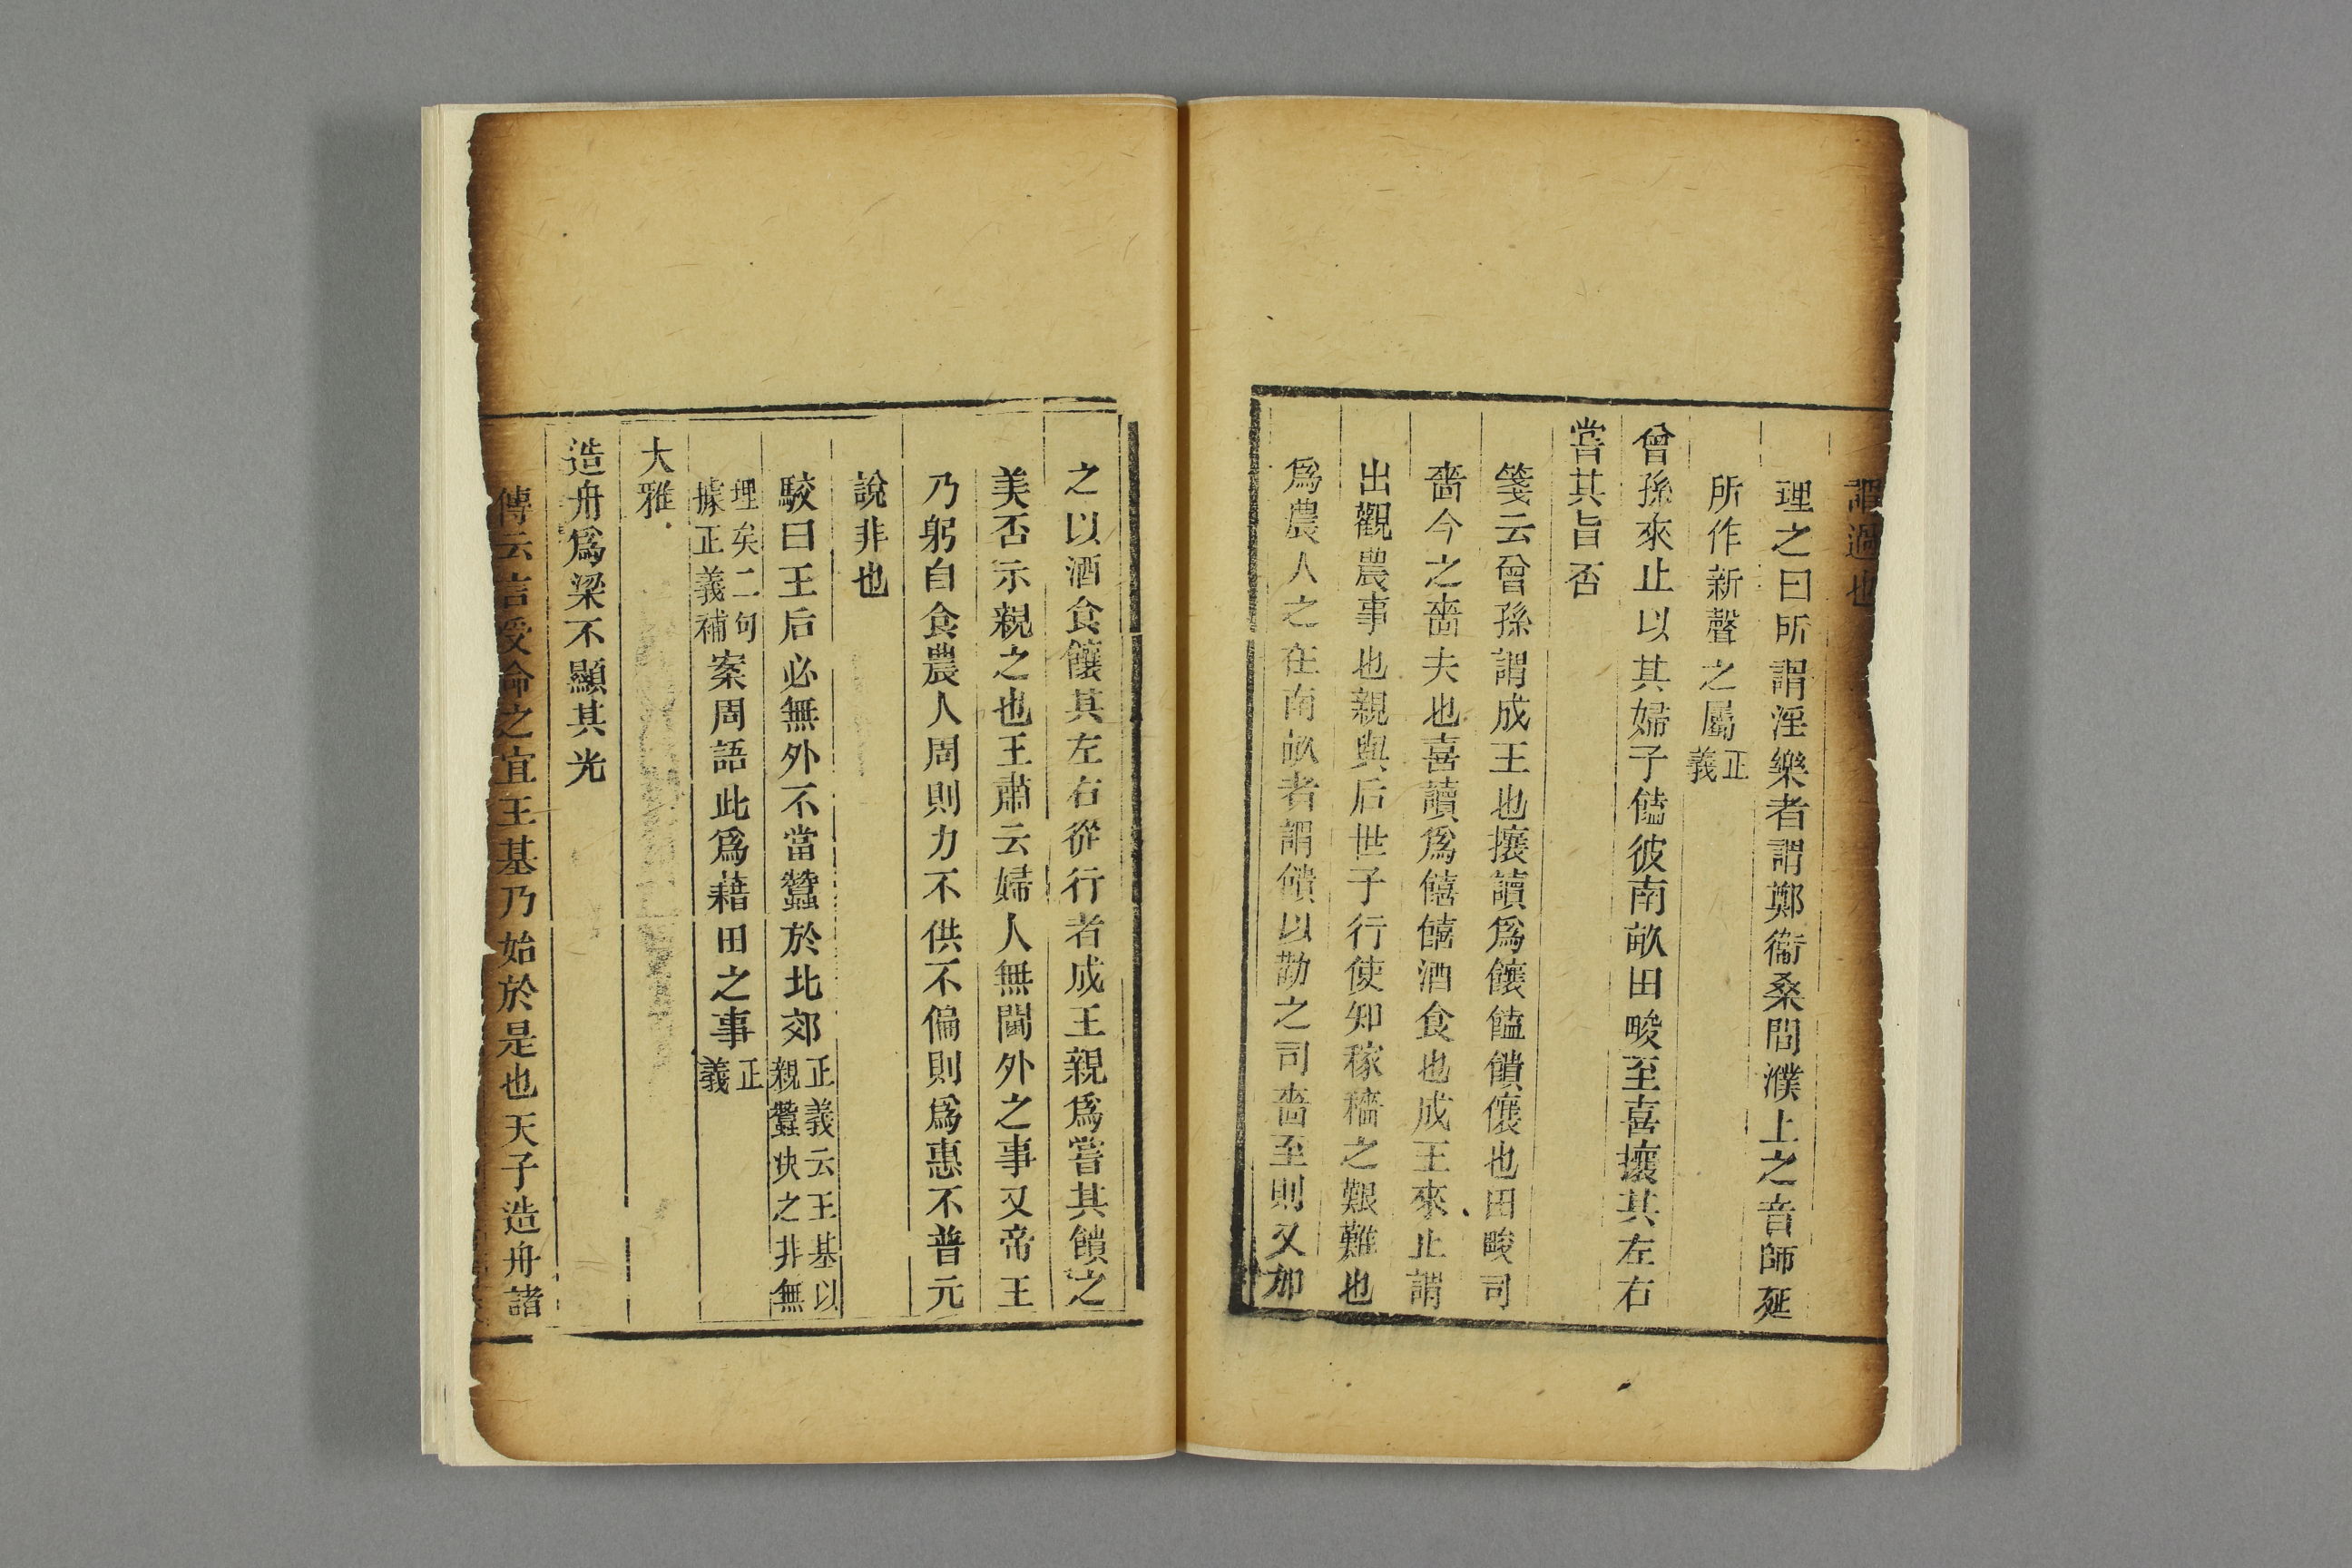 謂過也
理之曰所謂淫樂者謂鄭衞桑間濮上之音師延
所作新聲之屬正義
曾孫來止以其婦子饁彼南畝田畯至喜攘其左右
嘗其旨否
箋云曾孫謂成王也攘讀爲饟饁饋儴也田畯司
嗇今之嗇夫也喜讀爲饎饎酒食也成王來止謂
出觀農事也親與后世子行使知稼穡之艱難也
爲農人之在南畝者謂饋以勸之司嗇至則又加
之以酒食饟其左右從行者成王親爲嘗其饋之
美否示親之也王肅云婦人無閫外之事又帝王
乃躬自食農人周則力不供不偏則爲惠不普元
說非也
駮曰王后必無外不當蠶於北郊正義云王基以親蠶決之非無
理矣二句據正義補案周語此爲藉田之事正義
大雅
造舟爲梁不顯其光
傳云言受命之宜王基乃始於是也天子造舟諸